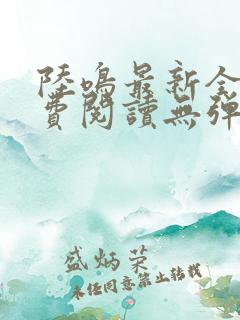 陸鳴最新全
費閱讀無彈
盛炳荣
未经同意禁止转载